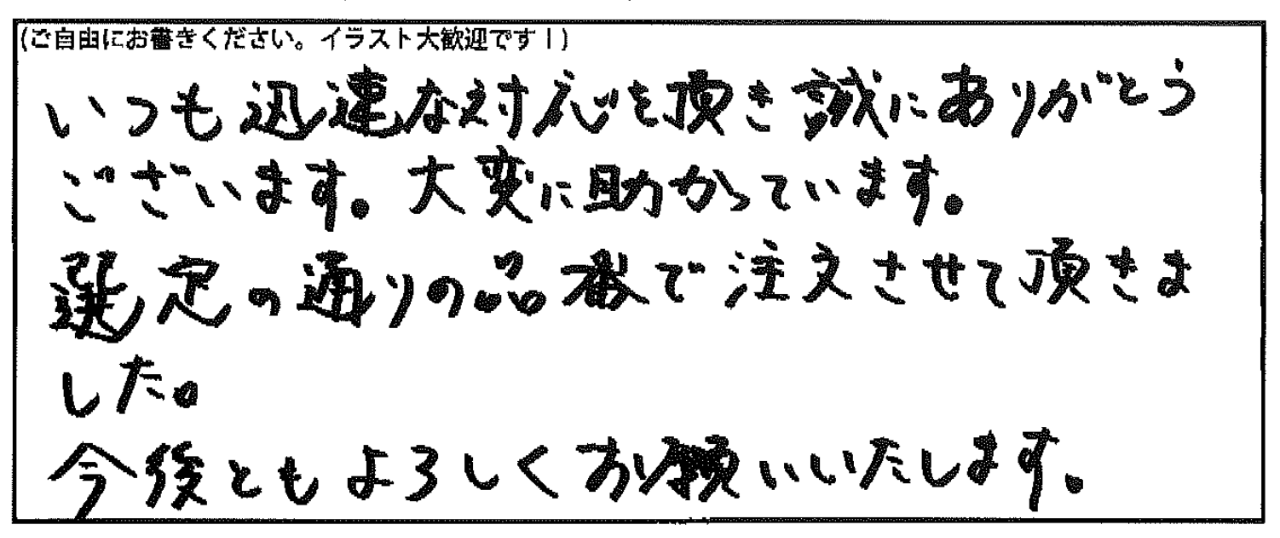 (ご自由にお書きください。イラスト大歓迎です！)
いつも迅速な対応を頂き誠にありがとう
ございます。大変に助かっています。
選定の通りの品番で注文させて頂きま
した。
今後ともよろしくお願いいたします。